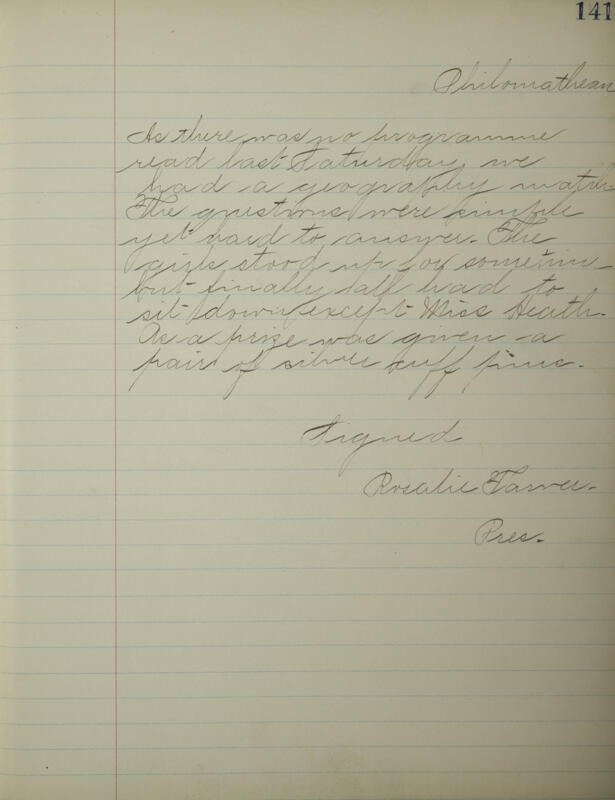 141
Philomathean
As there was no programme
read last Saturday we
had a geography match.
The questions were simple
yet hard to answer. The
girls stood up for sometime
but finally all had to
sit down except Miss Heath.
As a prize was given a
pair of silver cuff pins.
Signed
Rosalie
Pres.